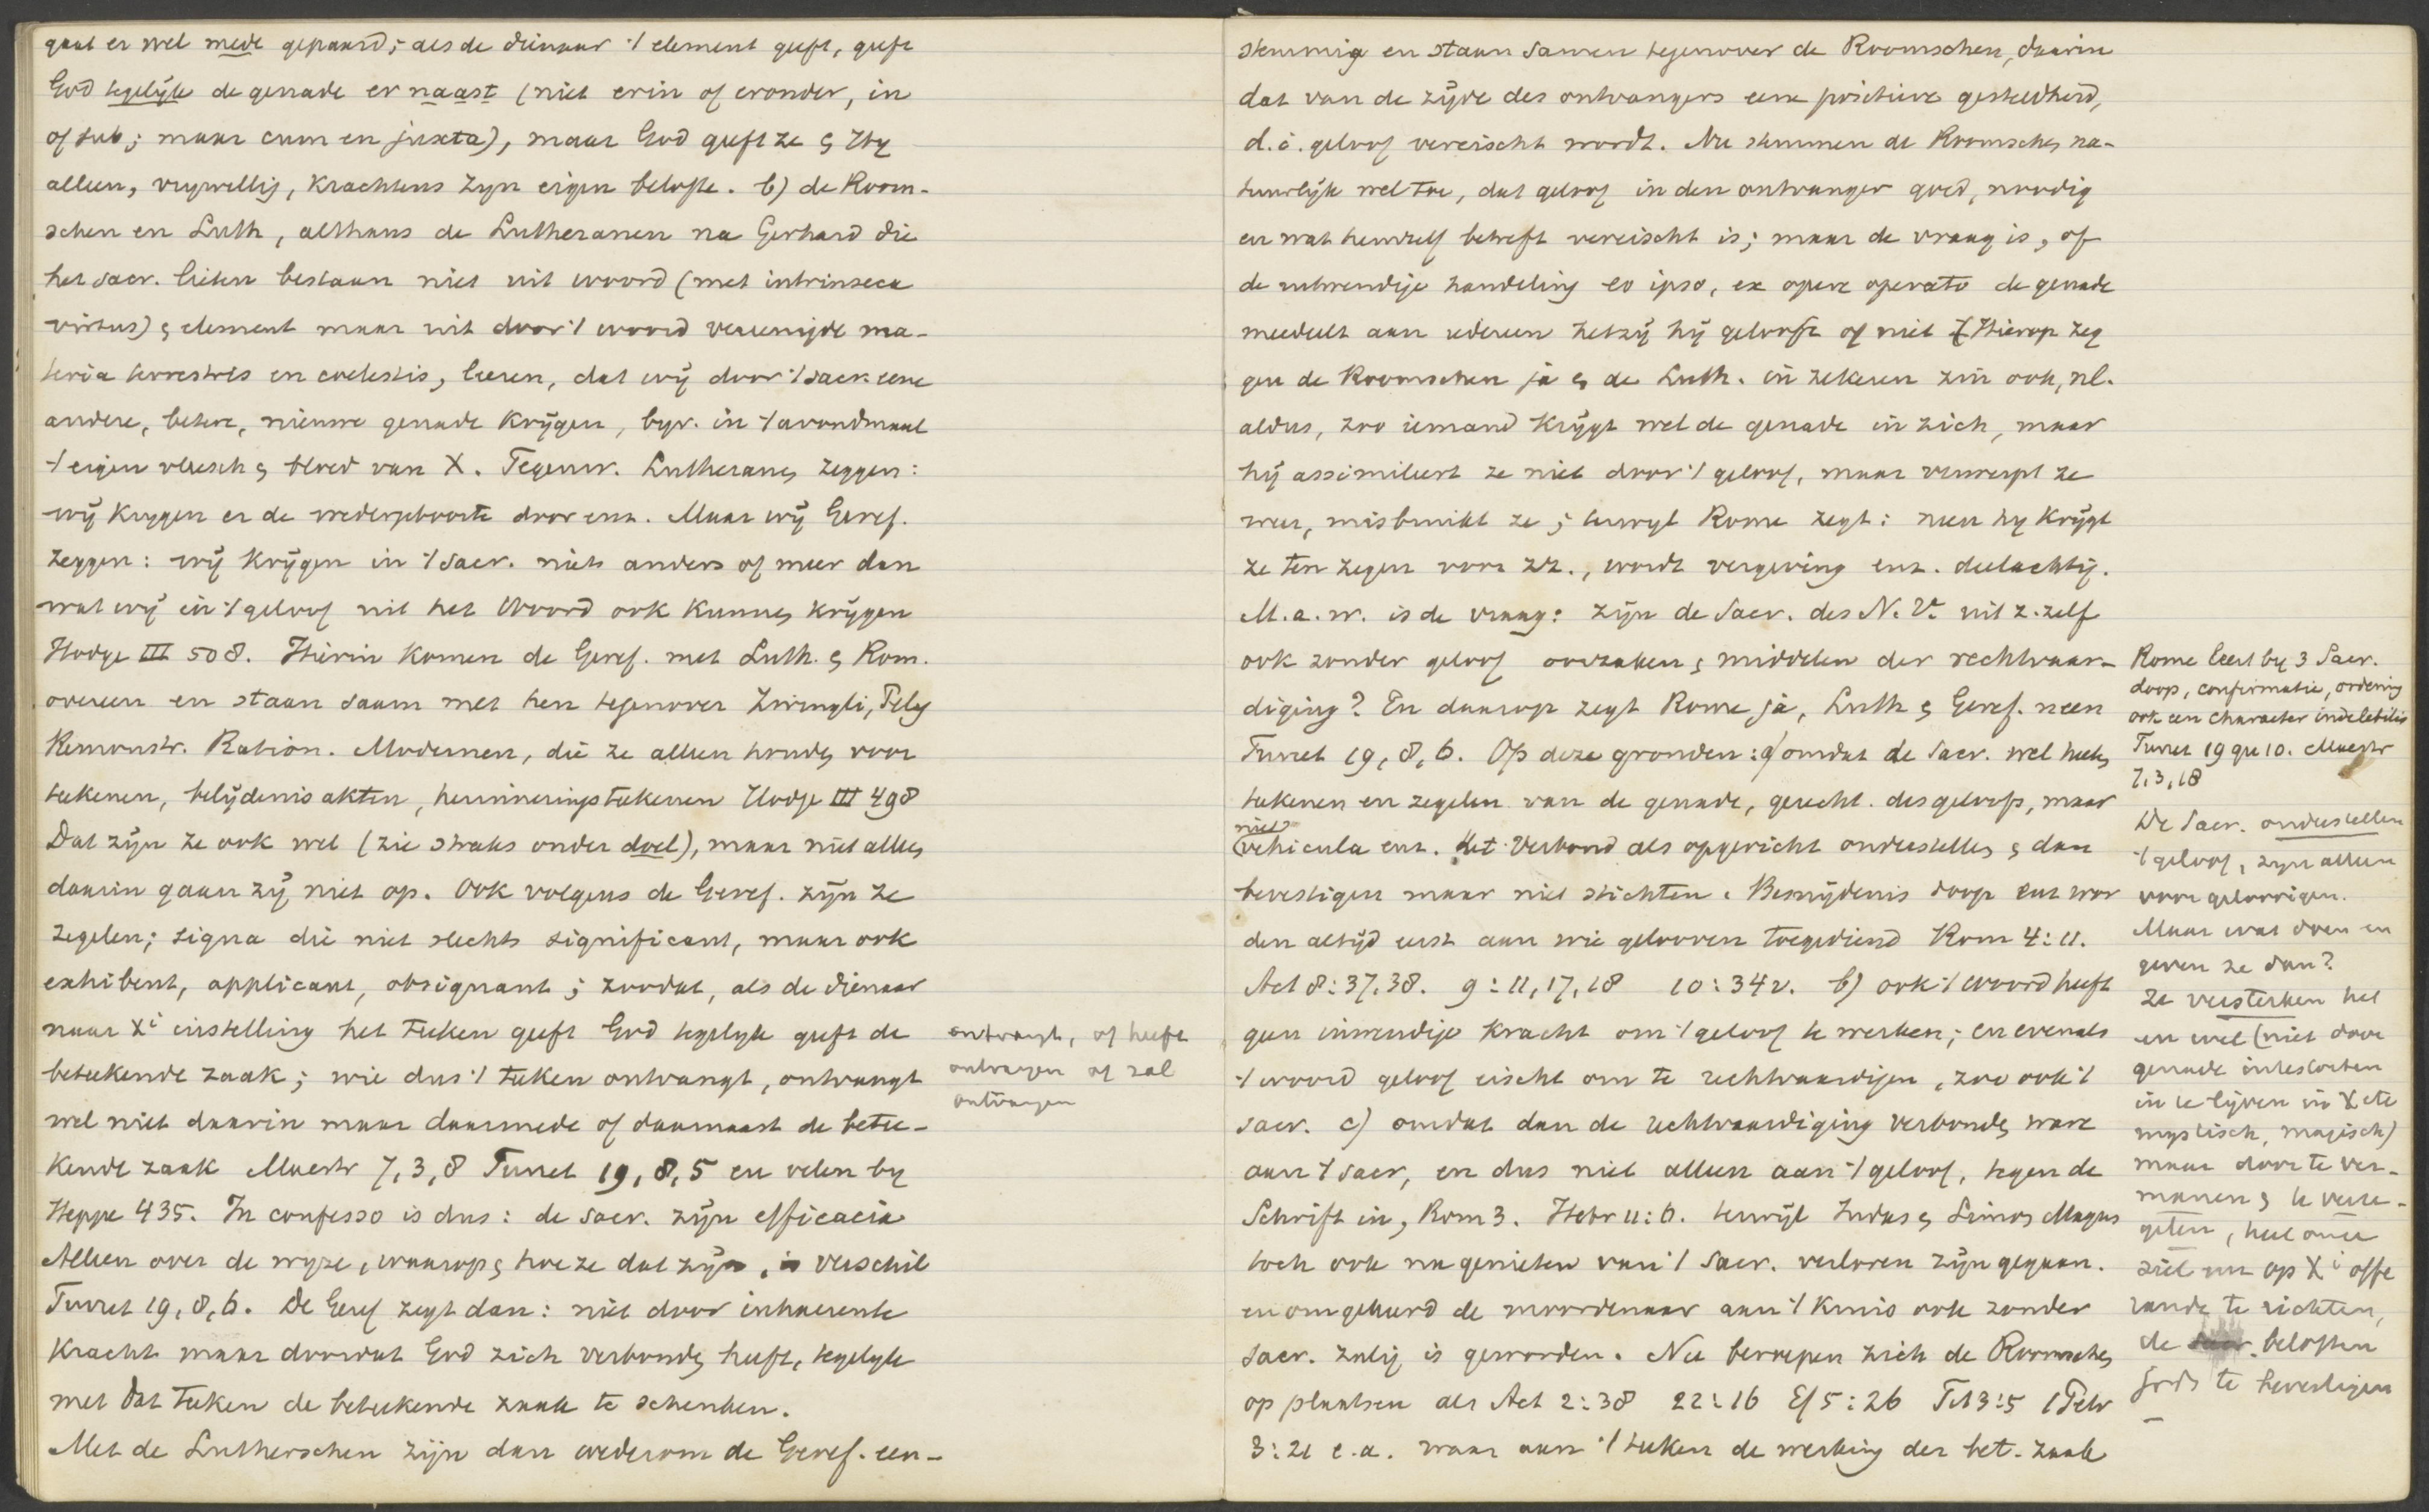 gaat er wel mede gepaard; als de dienaar 't element geeft, geeft
God tegelijk de genade er naast (niet erin of eronder, in
of sub; maar cum en juxta), maar God geeft ze & Hy
alleen, vrywillig, krachtens Zyn eigen belofte. b) de Room-
schen en Luth, althans de Lutheranen na Gerhard die
het sacr. lieten bestaan niet uit woord (met intrinseca
virtus) & element maar uit door 't woord vereenigde ma-
teria terrestris en coelestis, leeren, dat wij door 't sacr. eene
andere, betere, nieuwe genade krijgen, byv. in 't avondmaal
't eigen vleesch & bloed van X. Tegenw. Lutheranen zeggen:
wij krygen er de wedergeboorte door enz. Maar wij Geref.
zeggen: wij krijgen in 't sacr. niets anders of meer dan
wat wij in 't geloof uit het Woord ook kunnen krijgen
Hodge III 508. Hierin komen de Geref. met Luth. & Rom.
overeen en staan saam met hen tegenover Zwingli,
Remonstr. Ration. Modernen, die ze alleen houden voor
teekenen, belijdenis akten, herinneringsteekenen Hodge III 498
Dat zijn ze ook wel (zie straks onder doel), maar niet alleen
daarin gaan zij niet op. Ook volgens de Geref. zijn ze
zegelen; signa die niet slechts significant, maar ook
exhibent, applicant, obsignant; zoodat, als de dienaar
naar Xi instelling het teeken geeft God tegelyk geeft de
beteekende zaak; wie dus 't teeken ontvangt, ontvangt
wel niet daarin maar daarmede of daarnaast de betee-
kende zaak Maestr 7,3,8 Turret 19,8,5 en velen by
Heppe 435. In confesso is dus: de sacr. zijn efficacia
Alleen over de wyze, waarop & hoe ze dat zijn, is verschil
Turret 19,8,6. De Geref zegt dan: niet door inhaerente
kracht maar doordat God zich verbonden heeft, tegelyk
met dat teeken de beteekende zaak te schenken.
Met de Lutherschen zijn dan wederom de Geref. een-
ontvangt, of heeft
ontvangen of zal
ontvangen
stemmig en staan samen tegenover de Roomschen, daarin
dat van de zijde des ontvangers eene positieve gesteldheid,
d.i. geloof vereischt wordt. Nu stemmen de Roomschen na-
tuurlijk wel toe, dat geloof in den ontvanger goed, noodig
en wat hemzelf betreft vereischt is; maar de vraag is, of
de uitwendige handeling eo ipso, ex opere operato de genade
meedeelt aan iedereen hetzij hij gelooft of niet Hierop zeg
gen de Roomschen ja & de Luth. in zekeren zin ook, nl.
aldus, zoo iemand krijgt wel de genade in zich, maar
hij assimileert ze niet door 't geloof, maar verwerpt ze
weer, misbruikt ze; terwyl Rome zegt: neen hy krijgt
ze ten zegen voor zich, wordt vergeving enz. deelachtig.
M.a.w. is de vraag: zijn de Sacr. des N.V. uit z. zelf
ook zonder geloof oorzaken & middelen der rechtvaar-
diging? En daarop zegt Rome ja, Luth & Geref. neen
Turret 19,8,6. Op deze gronden: a) omdat de sacr. wel heeten
teekenen en zegelen van de genade, gerecht. des geloofs, maar
niet
vehicula enz. Het Verbond als opgericht onderstellen & dan
bevestigen maar niet stichten. Besnijdenis doop enz wor
den altijd eerst aan wie gelooven toegediend Rom 4:11.
Act 8:37.38. 9:11,17,18 10:34v. b) ook 't woord heeft
geen inwendige kracht om 't geloof te werken; en evenals
't woord geloof eischt om te rechtvaardigen, zoo ook 't
sacr. c) omdat dan de rechtvaardiging verbonden ware
aan 't sacr, en dus niet alleen aan 't geloof, tegen de
Schrift in, Rom 3. Hebr 11:6. terwijl Judas & Simon Magus
toch ook na genieten van 't Sacr. verloren zijn gegaan.
en omgekeerd de moordenaar aan 't kruis ook zonder
sacr. zalig is geworden. Nu beroepen zich de Roomschen
op plaatsen als Act 2:38 22:16 Ef 5:26 Tit 3:5 1 Petr
3:21 e.a. waar aan 't teeken de werking der bet. zaak
Rome leert by 3 Sacr.
doop, confirmatie, ordening
ook een character indelebilis
Turret 19 qu 10. Maestr
7,3,18
De Sacr. onderstellen
't geloof, zyn alleen
voor geloovigen.
Maar wat doen en
geven ze dan?
Ze versterken het
en wel (niet door
genade intestorten
in te lijven in X etc
mystisch, magisch)
maar door te ver-
manen & te verze-
gelen, heel onze
ziel om op Xi offe
rande te richten,
de beloften
Gods te bevestigen